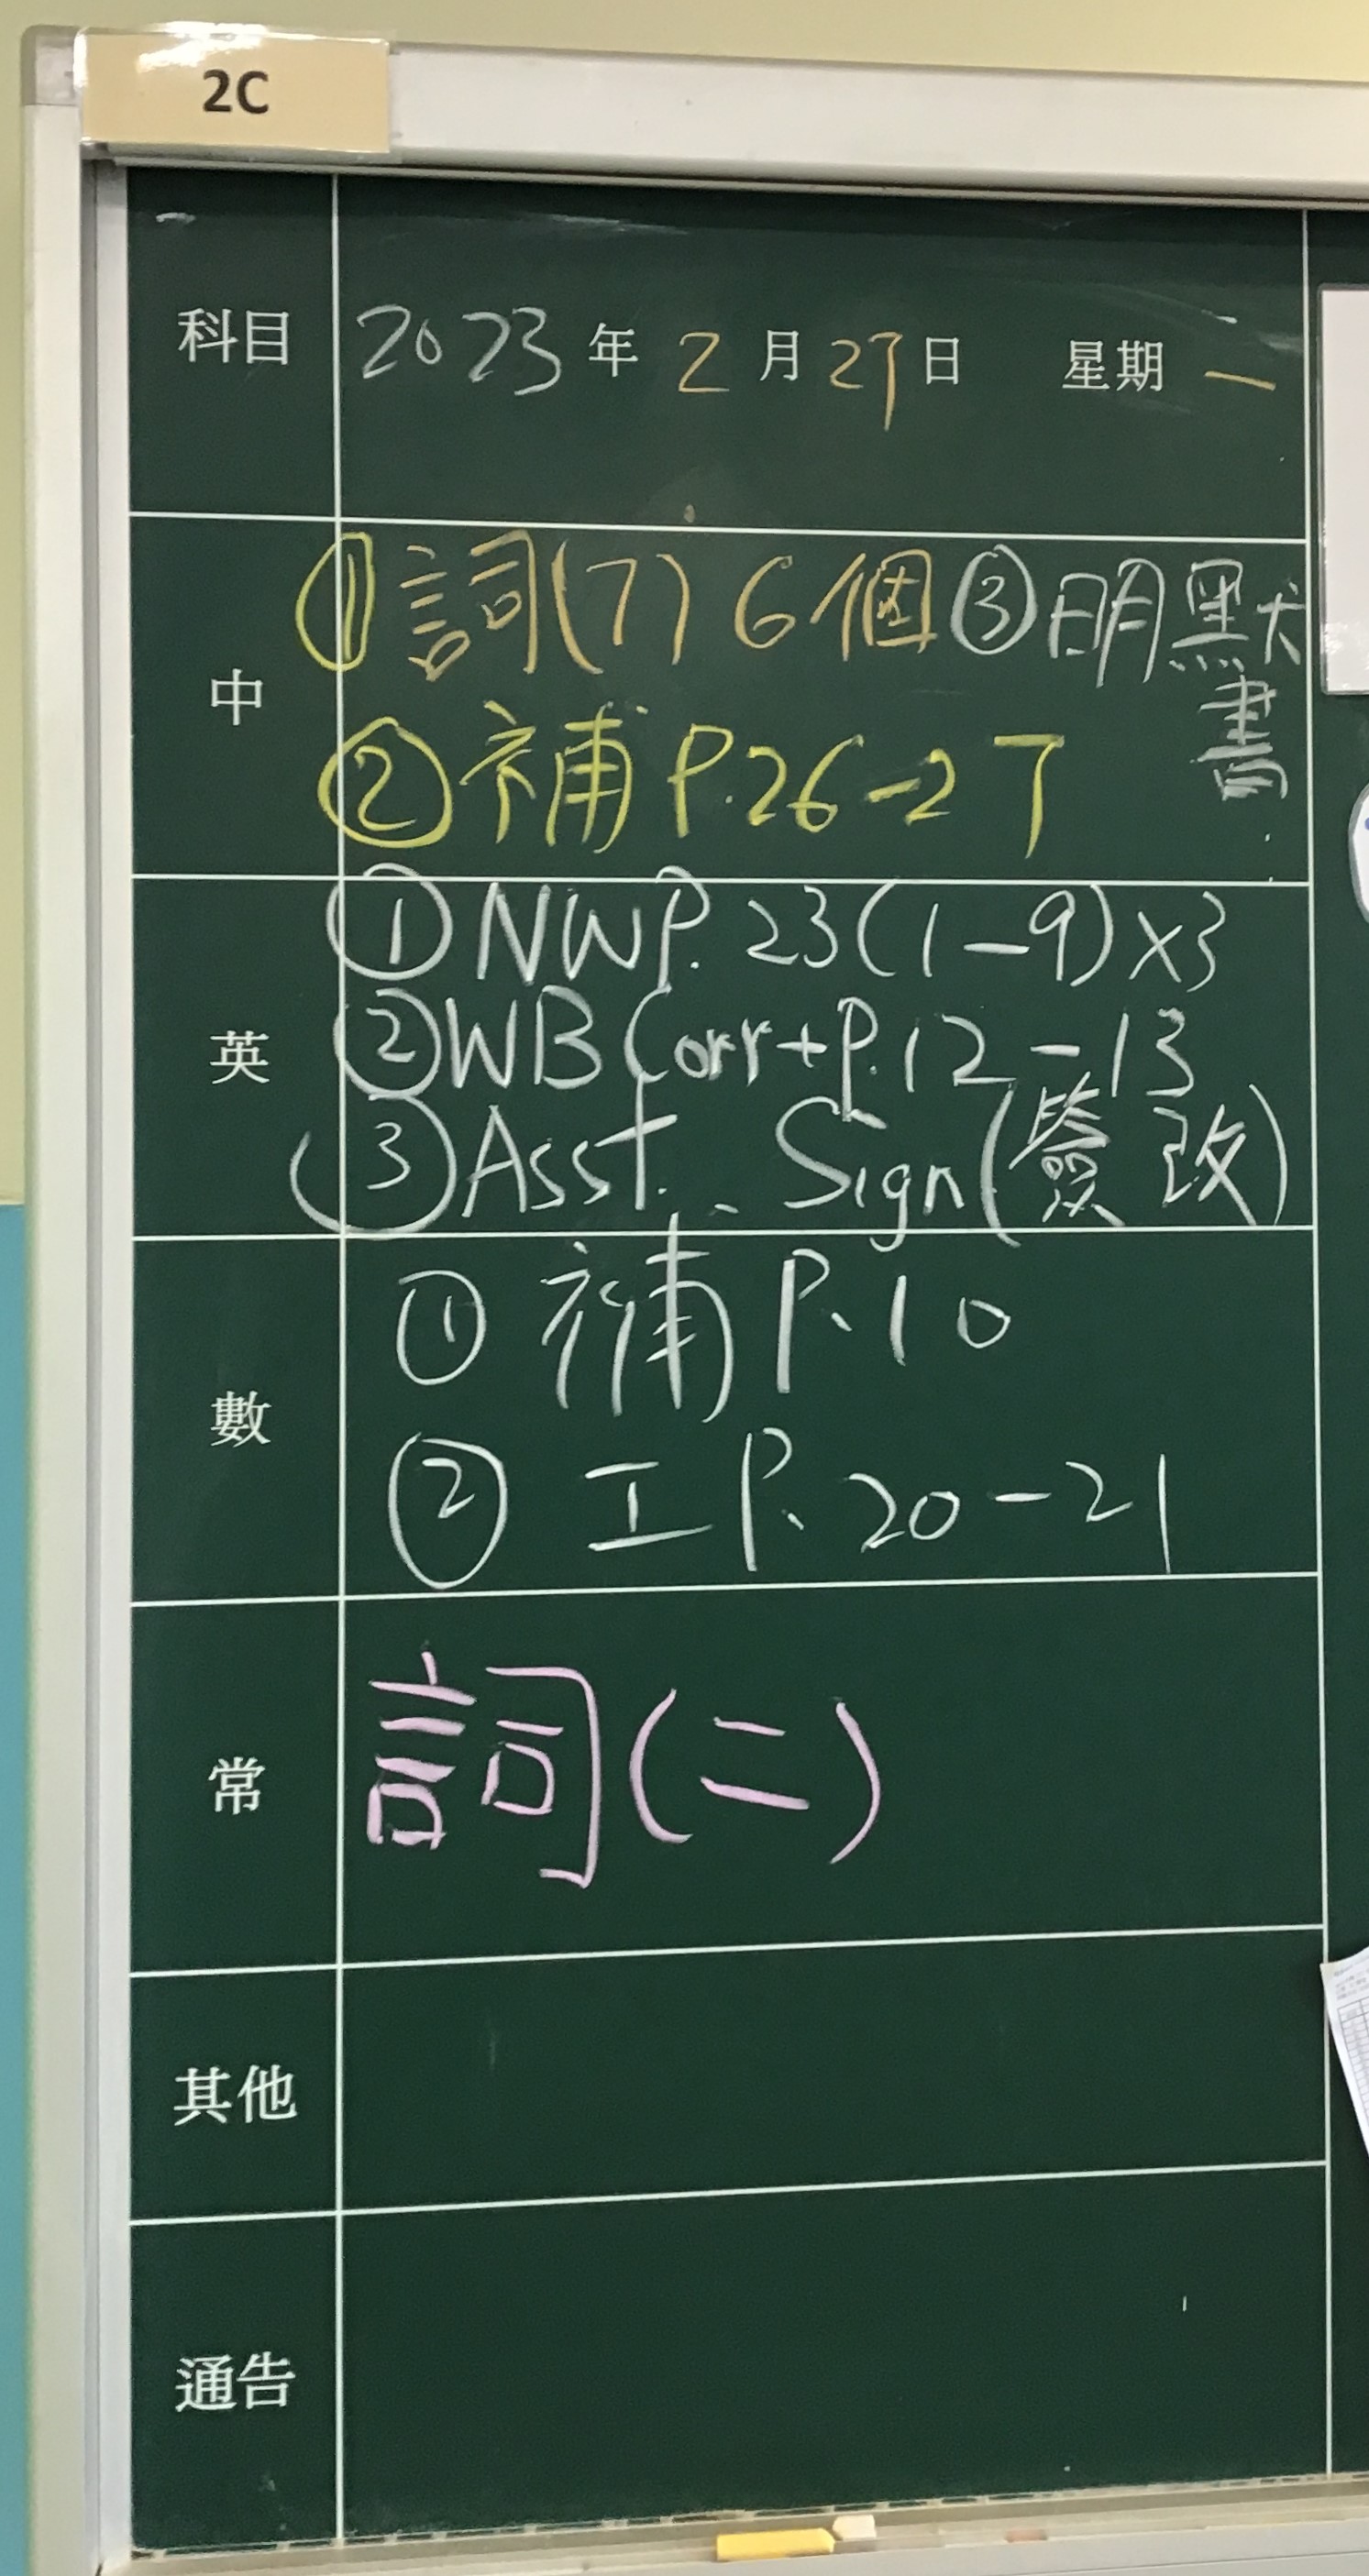 2C
科目 2023年2月27日 星期一
中
①詞(7)6個 ③明默書
②補P.26-27
英
①NWP.23(1-9)x3
②WB Corr+P.12-13
③Asst. Sign(簽改)
數
①補P.10
②工P.20-21
常
詞(二)
其他
通告